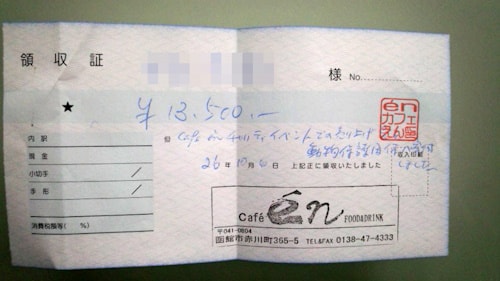 領収証
様 No.
★ ¥13,500.-
但 Café en チャリティイベントでの売り上げ
内訳
現金
小切手
手形
消費税額等( %)
26年 月 日 上記正に領収いたしました
収入印紙
en
カフェ
えん
Café én FOOD&DRINK
〒041-0804
函館市赤川町365-5 TEL&FAX 0138-47-4333